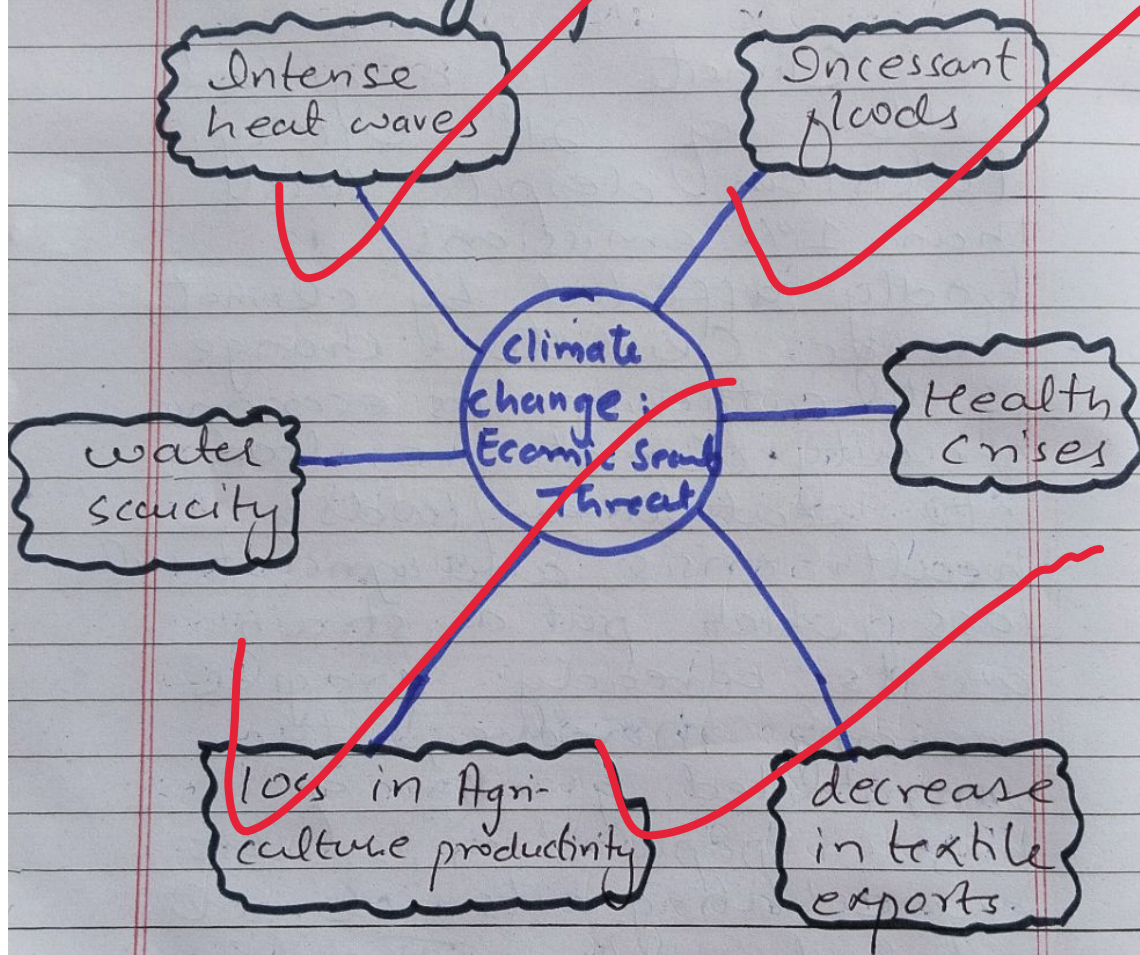 Intense
heat waves
Incessant
floods
climate
change :
Ecomic
Threat
Health
Crises
water
scarcity
loss in Agri-
culture productivity
decrease
in textile
exports.